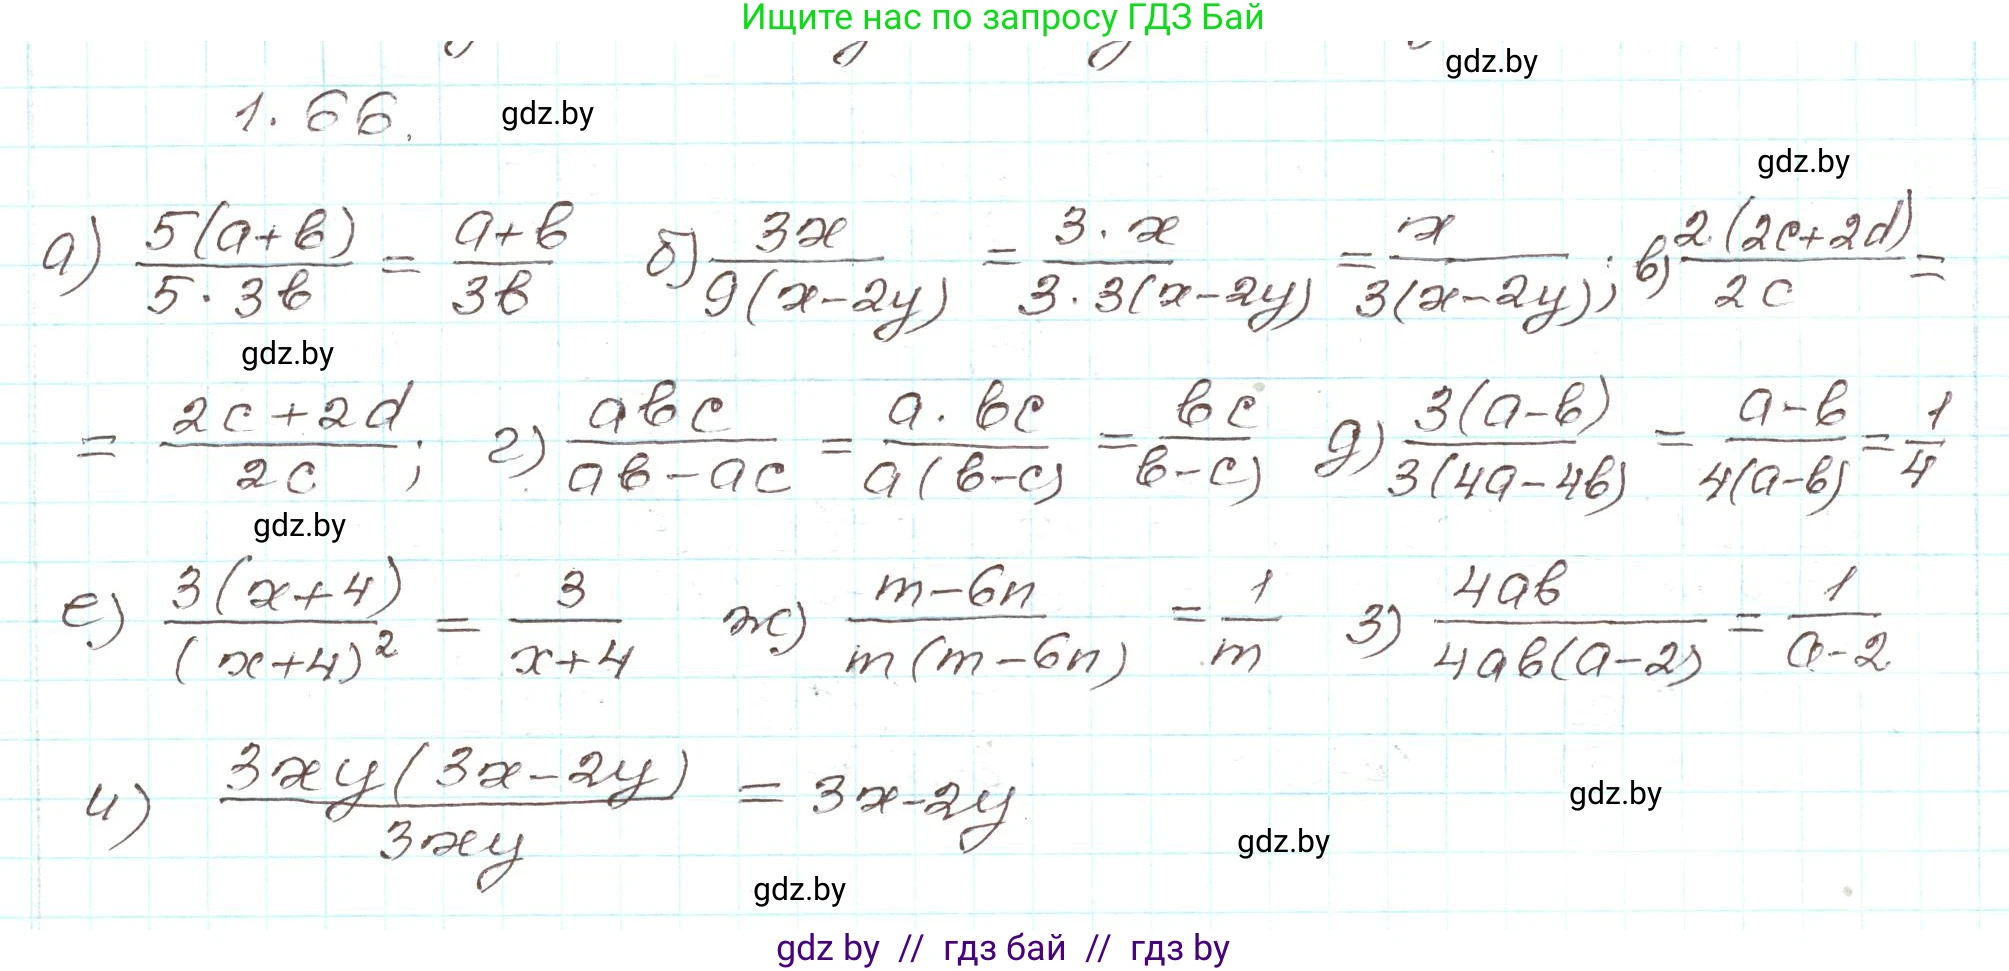 Ищите нас по запросу ГДЗ Бай
gdz.by
1.66. gdz.by
gdz.by
а) 5(a+b)/(5·3b) = (a+b)/(3b) б) 3x/(9(x-2y)) = 3·x/(3·3(x-2y)) = x/(3(x-2y)); в) 2·(2c+2d)/(2c) =
gdz.by
= (2c+2d)/(2c); г) abc/(ab-ac) = a·bc/(a(b-c)) = bc/(b-c) д) 3(a-b)/(3(4a-4b)) = (a-b)/(4(a-b)) = 1/4
gdz.by
е) 3(x+4)/(x+4)² = 3/(x+4) ж) (m-6n)/(m(m-6n)) = 1/m з) 4ab/(4ab(a-2)) = 1/(a-2)
и) 3xy(3x-2y)/(3xy) = 3x-2y
gdz.by
gdz.by
gdz.by
gdz by // гдз бай // гдз by